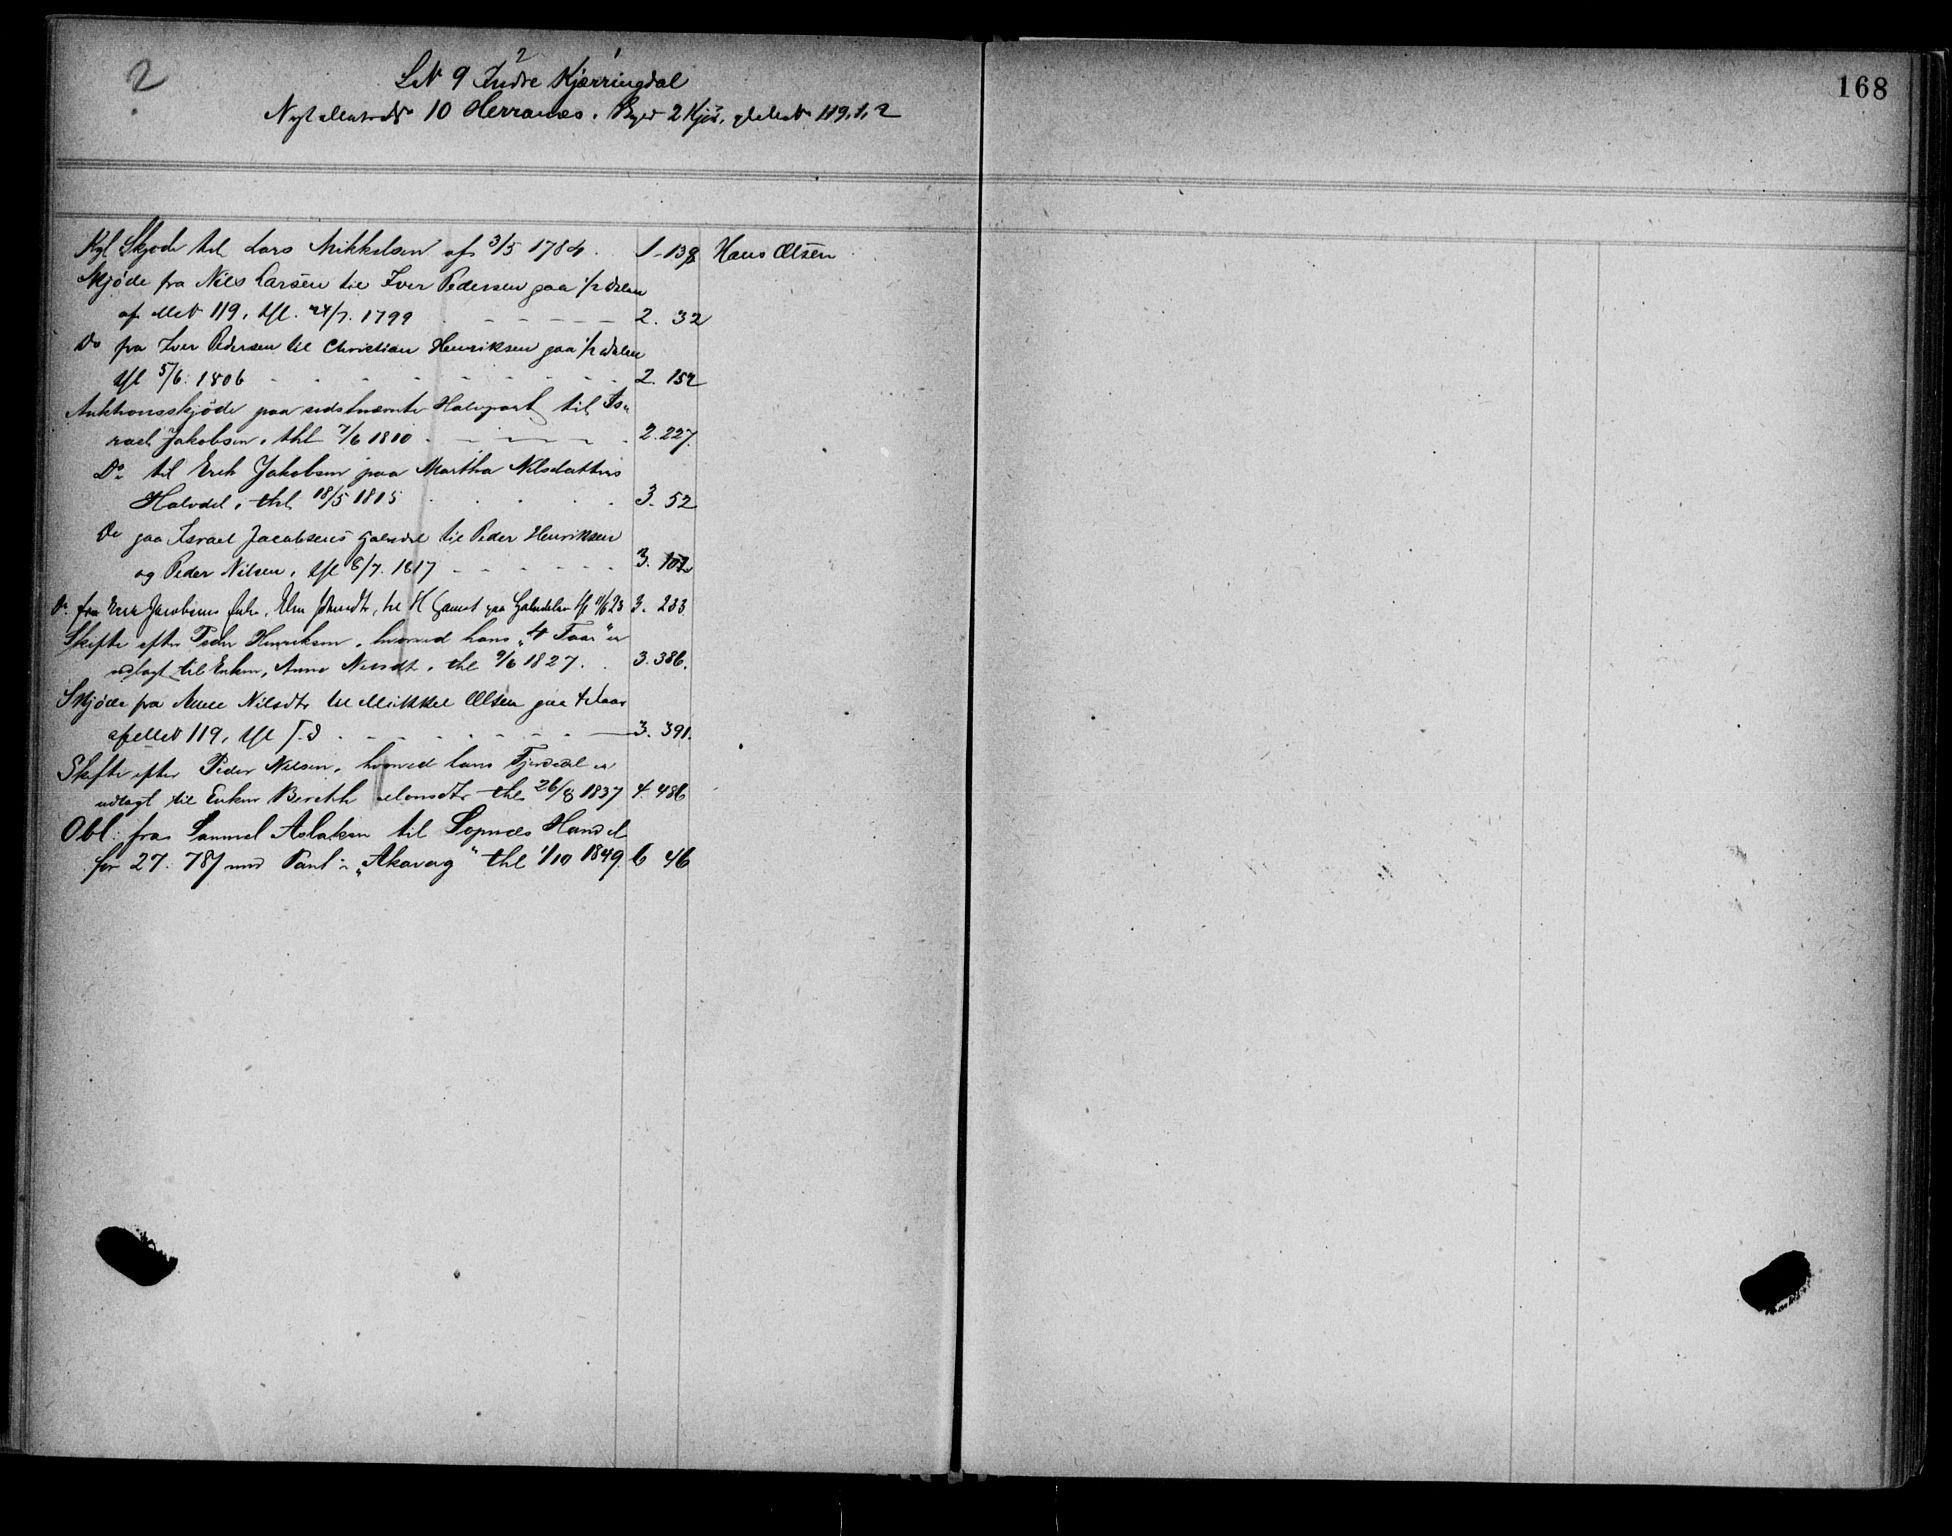 ?
168
2 1
LN 9 Indre Kjærringdal
Nyt Matr No 10 Herranæs. Byes 2 Kjø, gl Mat No 119, 1, 2
Kgl Skjøde til Lars Mikkelsen af 3/5 1784. 1 - 138 Hans Olsen
Skjøde fra Nils Larsen til Iver Pedersen paa 1/2 delen
af MN 119, thl. 24/7. 1799 - - - - - 2. 32
Do fra Iver Pedersen til Christian Henriksen paa 1/2 delen
thl 5/6. 1806 - - - - - - - 2. 152
Auktionsskjøde paa sidstnævnte Halvpart til Is-
rael Jakobsen, thl 7/6 1810 - - - - 2. 227.
Do til Erik Jakobsen paa Martha Nilsdatters
Halvdel, thl 18/5 1815 . . . . 3. 52
Do paa Israel Jacobsens Halvdel til Peder Henriksen
og Peder Nilsen, thl 8/7. 1817 - - - - - - 3. 102
Do fra Erik Jacobsens Enke, til H paa Halvdelen thl 11/6 23 3. 233.
Skifte efter Peder Henriksen, hvorved hans "4 Faar" er
udlagt til Enken, Anne Nilsdt, thl 9/6 1827. . 3. 386.
Skjøde fra Anne Nilsdtr til Mikkel Olsen paa 4 Faar
af MN 119, thl s.d - - - - - - - 3. 391.
Skifte efter Peder Nilsen, hvorved hans Fjerdedel er
udlagt til Enken Bereth Monsdtr thl 26/8 1837 4. 486
Obl: fra Samuel Aslaksen til Sopnæs Handel
for 27. 78 med Pant i "Akavag" thl 1/10 1849. 6 46